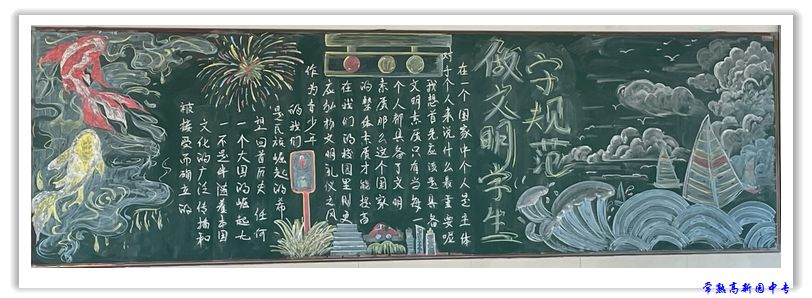 守规范
做文明学生
在一个国家中个人是主体
对于个人来说什么最重要呢
我想首先应该是具备
文明素质只有当每一
个人都具备了文明
素质那么这个国家
的整体素质才能提高
在我们的校园里则更
应弘扬文明礼仪之风
作为青少年
的我们
是民族崛起的希
望回首历史任何
一个大国的崛起无
不是伴随着本国
文化的广泛传播和
被接受而确立的
常熟高新园中专